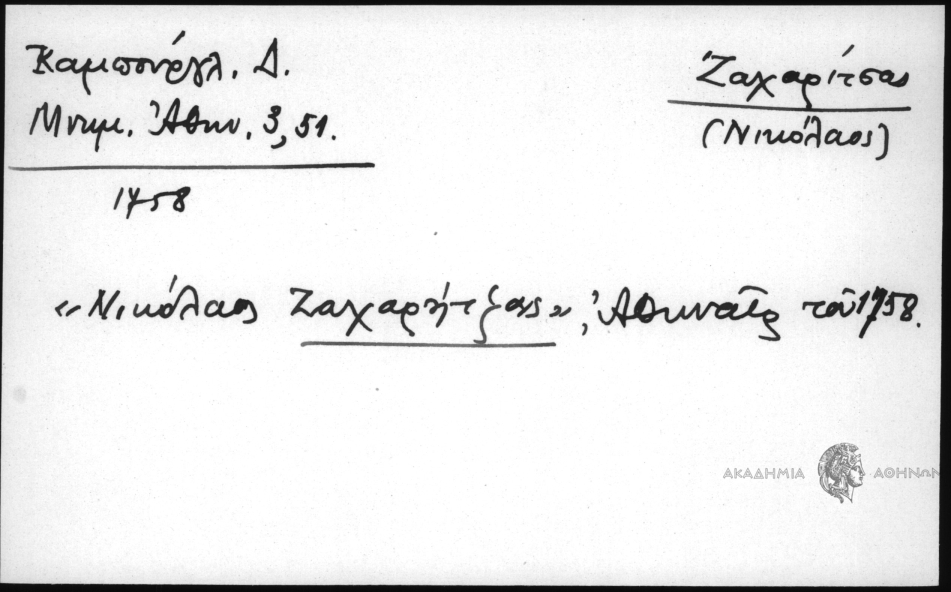 Καμπούργλ. Δ.
Μνημ. Ἀθην. 3, 51.
1758
Ζαχαρίτσας
(Νικόλαος)
«Νικόλαος Ζαχαρήτζας», Ἀθηναῖος τοῦ 1758.
ΑΚΑΔΗΜΙΑ ΑΘΗΝΩΝ